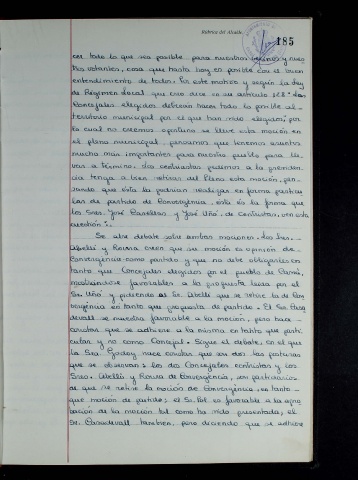 Rúbrica del Alcalde,
185
cer todo lo que sea posible para nuestros vecinos y nues
tros votantes, cosa que hasta hoy es posible con el buen
entendimiento de todos. Por este motivo y según la Ley
de Régimen Local que creo dice en su artículo los
Concejales elegidos deberán hacer todo lo posible al
territorio municipal por el que han sido elegidos, por
lo cual no creemos oportuno se lleve esta moción en
el pleno municipal, pensamos que tenemos asuntos
mucho más importantes para nuestro pueblo para lle
var a término. Los centristas pedimos a la presiden
cia tenga a bien retirar del Pleno esta moción, pen
sando que ésta la podrían realizar en forma particu
lar de partido de Convergencia. esta es la forma que
los Sres. José Casellas y José Uñó, de Centristas, ven esta
cuestión".
Se abre debate sobre ambas mociones. Los Sres.
Abellí y Rovira creen que su moción es opinión de
Convergencia como partido y que no debe obligarles en
tanto que Concejales elegidos por el pueblo de
mostrándose favorables a la propuesta hecha por el
Sr. Uñó y pidiendo el Sr. Abellí que se retire la de Con
vergencia en tanto que propuesta de partido. El Sr.
se muestra favorable a la moción, pero hace
constar que se adhiere a la misma en tanto que parti
cular y no como Concejal. Sigue el debate, en el que
la Sra. Godoy hace constar que son dos las posturas
que se observan: los dos Concejales centristas y los
Sres. Abellí y Rovira de Convergencia, son partidarios
de que se retire la moción de Convergencia, en tanto
que moción de partido; el Sr. Pol es favorable a la apro
bación de la moción tal como ha sido presentada; el
Sr. Casadevall también, pero diciendo que se adhiere